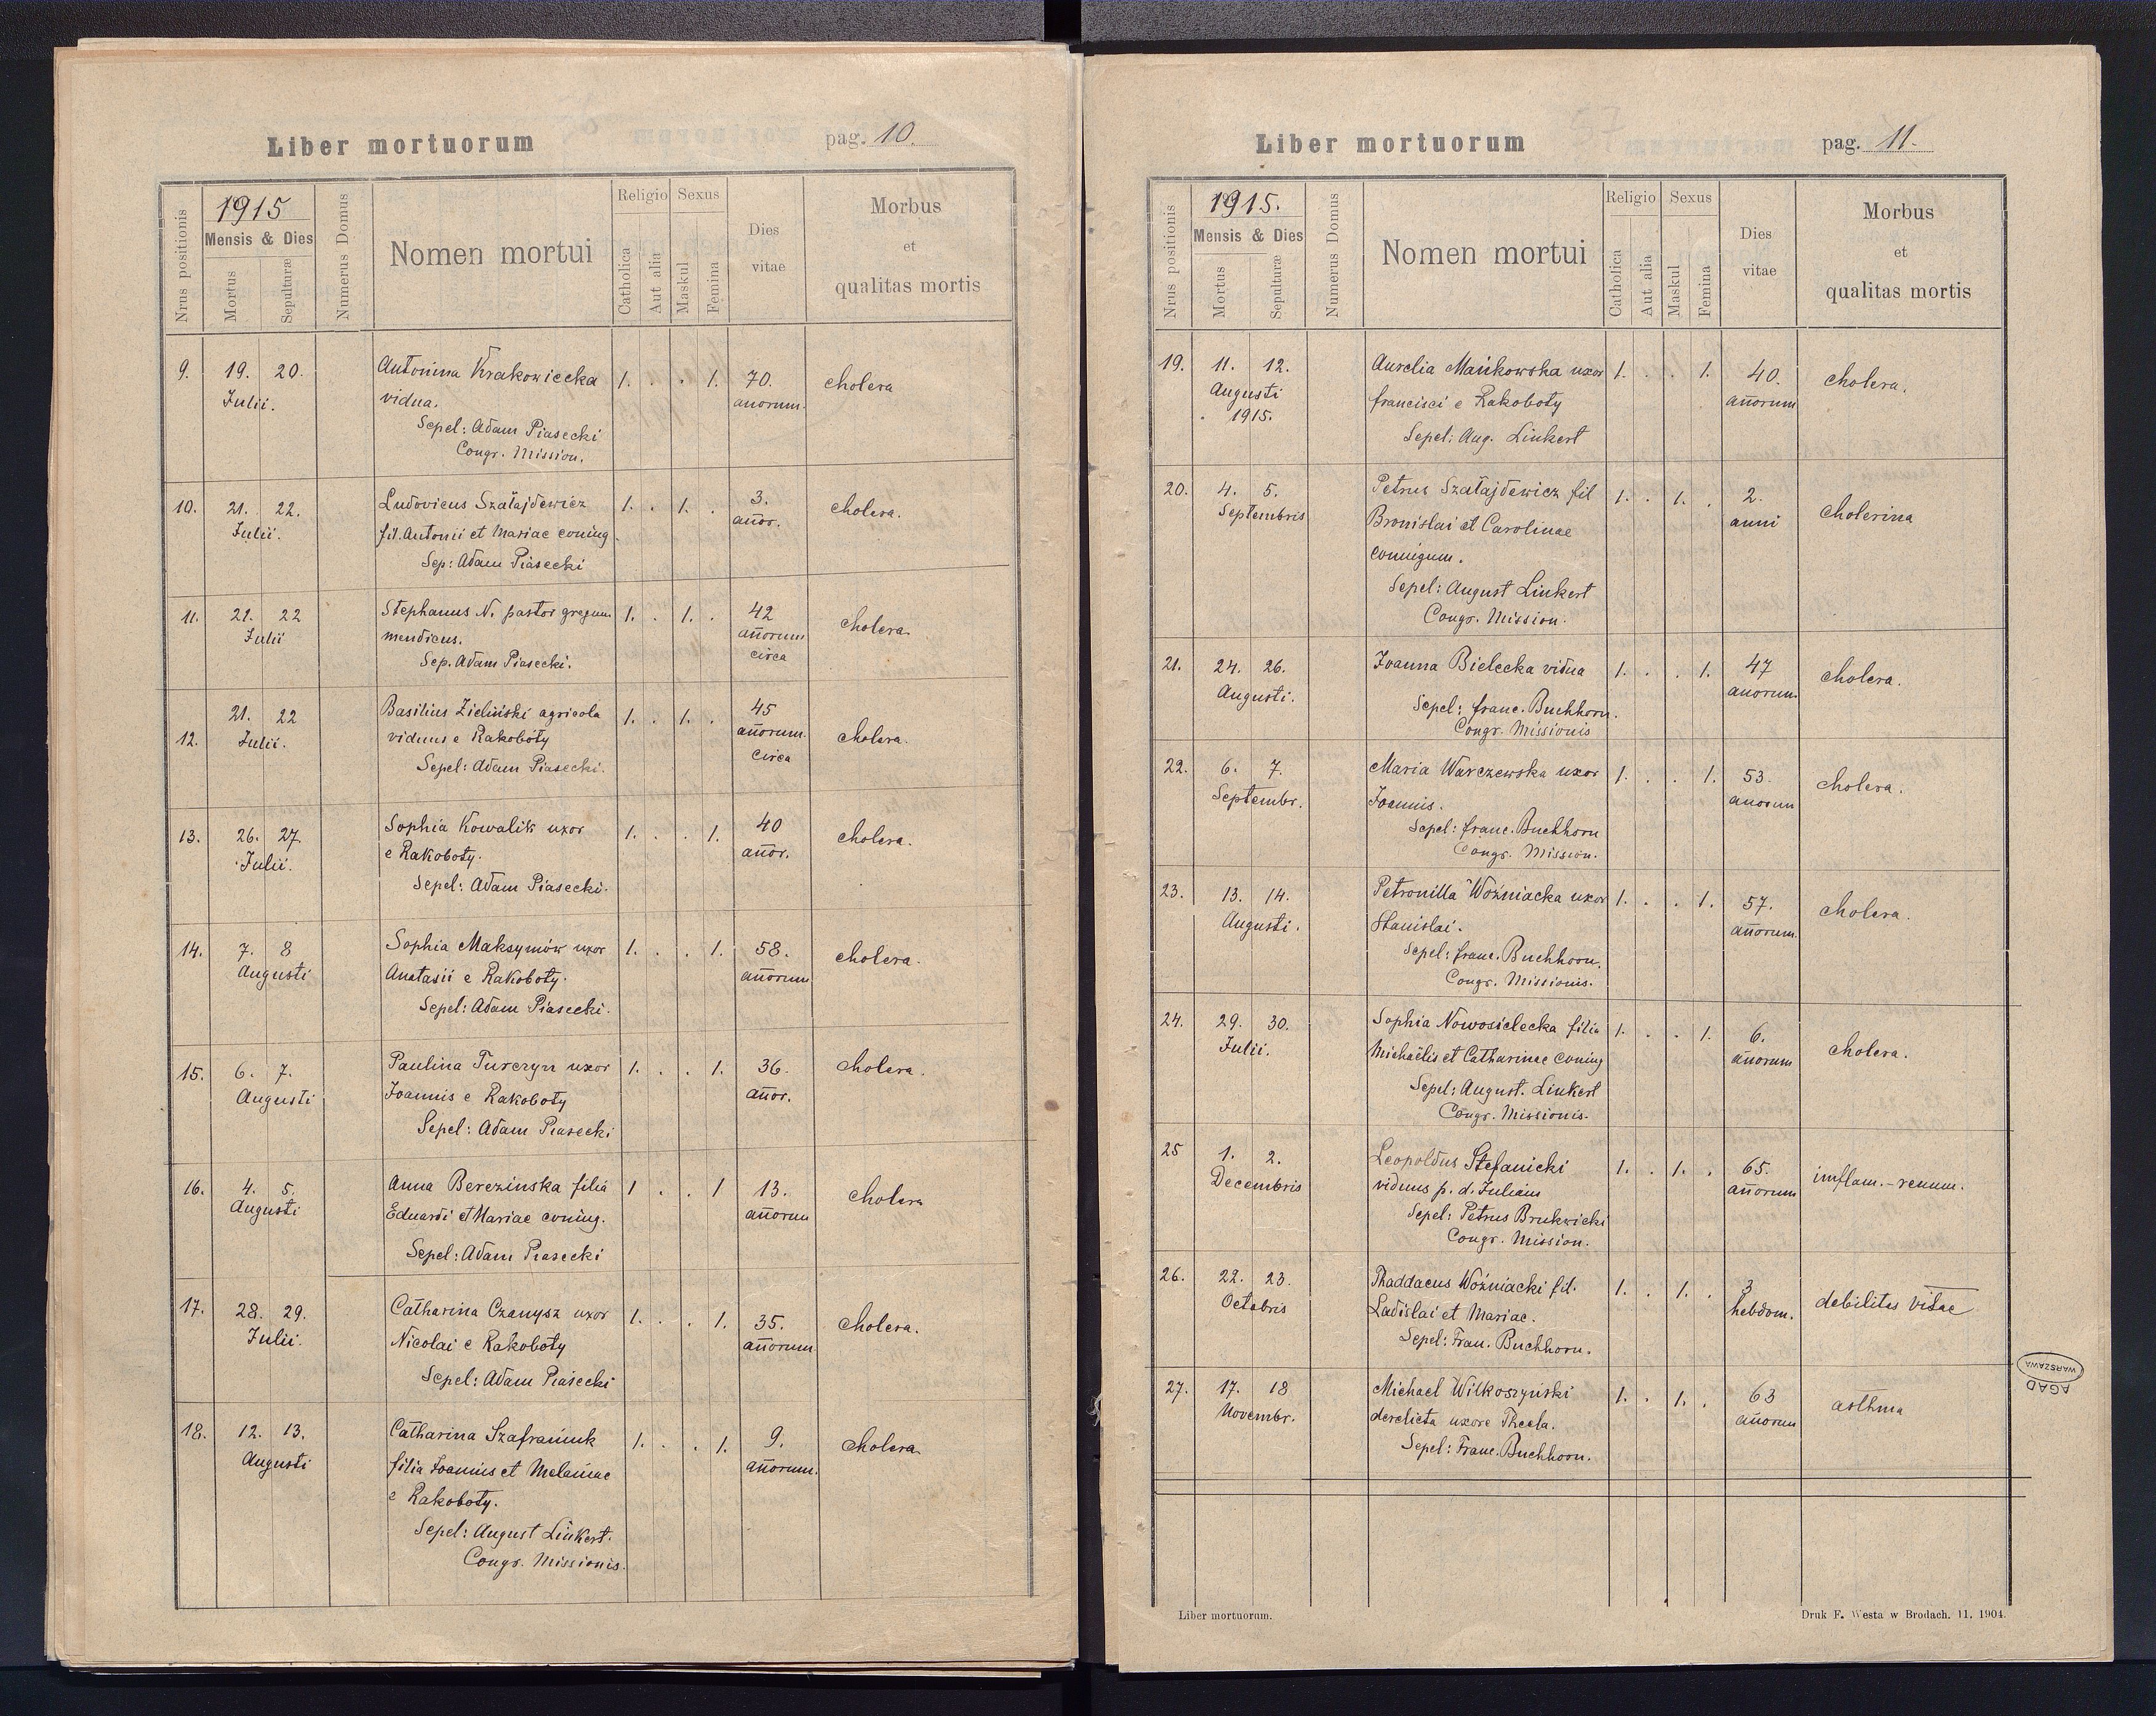 Liber mortuorum
pag. 10.
Nrus positionis
1915
Mensis & Dies
Mortus
Sepulturæ
Numerus Domus
Nomen mortui
Religio
Catholica
Aut alia
Sexus
Maskul
Femina
Dies
vitae
Morbus
et
qualitas mortis
9. 19. 20. Antonina Krakowiecka 1. . . 1. 70. cholera
Julii. vidua. anorum.
Sepel: Adam Piasecki
Congr. Mission.
10. 21. 22. Ludovicus Szałajdewicz 1. . 1. . 3. cholera.
Julii. fil. Antonii et Mariae coniug. añor.
Sep: Adam Piasecki
11. 21. 22 Stephanus N. pastor gregum 1. . 1. . 42 cholera.
Julii mendicus. añorum
Sep. Adam Piasecki. circa
12. 21. 22 Basilius Zieliński agricola 1. . 1. . 45 cholera.
Julii. viduus e Rakoboty añorum.
Sepel: Adam Piasecki. circa
13. 26. 27. Sophia Kowalik uxor 1. . . 1. 40 cholera.
Julii. e Rakoboty. añor.
Sepel: Adam Piasecki.
14. 7. 8 Sophia Maksymów uxor 1. . . 1. 58. cholera.
Augusti Anatasii e Rakoboty. añorum
Sepel: Adam Piasecki.
15. 6. 7. Paulina Turczyn uxor 1. . . 1. 36. cholera.
Augusti Joannis e Rakoboty añor.
Sepel: Adam Piasecki
16. 4. 5. Anna Berezinska filia 1 . . 1 13. cholera
Augusti Eduardi et Mariae coniug. añorum
Sepel: Adam Piasecki
17. 28. 29. Catharina Czanysz uxor 1. . . 1. 35. cholera.
Julii. Nicolai e Rakoboty añorum
Sepel: Adam Piasecki
18. 12. 13. Catharina Szafraniuk 1. . . 1. 9. cholera
Augusti filia Joannis et Melaniae añorum.
e Rakoboty.
Sepel: August Linkert.
Congr. Missionis.
Liber mortuorum
pag. 11.
Nrus positionis
1915.
Mensis & Dies
Mortus
Sepulturæ
Numerus Domus
Nomen mortui
Religio
Catholica
Aut alia
Sexus
Maskul
Femina
Dies
vitae
Morbus
et
qualitas mortis
19. 11. 12. Aurelia Mańkowska uxor 1. . . 1. 40. cholera.
Augusti francisci e Rakoboty añorum
1915. Sepel: Aug. Linkert
20. 4. 5. Petrus Szałajdewicz fil 1. . 1. . 2. cholerina
Septembris Bronislai et Carolinae anni
coniugum.
Sepel: August Linkert
Congr. Mission.
21. 24. 26. Joanna Bielecka vidua 1. . . 1. 47 cholera.
Augusti. Sepel: franc. Buchhorn. anorum
Congr. Missionis
22. 6. 7. Maria Warczewska uxor 1. . . 1. 53. cholera.
Septembr. Joannis. anorum
Sepel: franc. Buchhorn
Congr. Mission.
23. 13. 14. Petronilla Woźniacka uxor 1. . . 1. 57. cholera.
Augusti. Stanislai. añorum.
Sepel: franc. Buchhorn.
Congr. Missionis.
24. 29. 30. Sophia Nowosielecka filia 1. . . 1. 6. cholera.
Julii. Michaëlis et Catharinae coniug añorum
Sepel: August. Linkert
Congr. Missionis.
25 1. 2. Leopoldus Stefanicki 1. . 1. . 65. inflam. - renum.
Decembris viduus p. d. Juliam añorum
Sepel: Petrus Brukwicki
Congr. Mission.
26. 22. 23. Thaddaeus Woźniacki fil. 1. . 1. . 3 debilitas vitae
Octobris Ladislai et Mariae. hebdom.
Sepel: Fran. Buchhorn.
27. 17. 18 Michael Wilkoszyński 1. . 1. . 63 asthma
Novembr. derelicta uxore Thecla. añorum
Sepel: Franc. Buchhorn.
Liber mortuorum.
Druk F. Westa w Brodach. 11. 1904.
AGAD
WARSZAWA